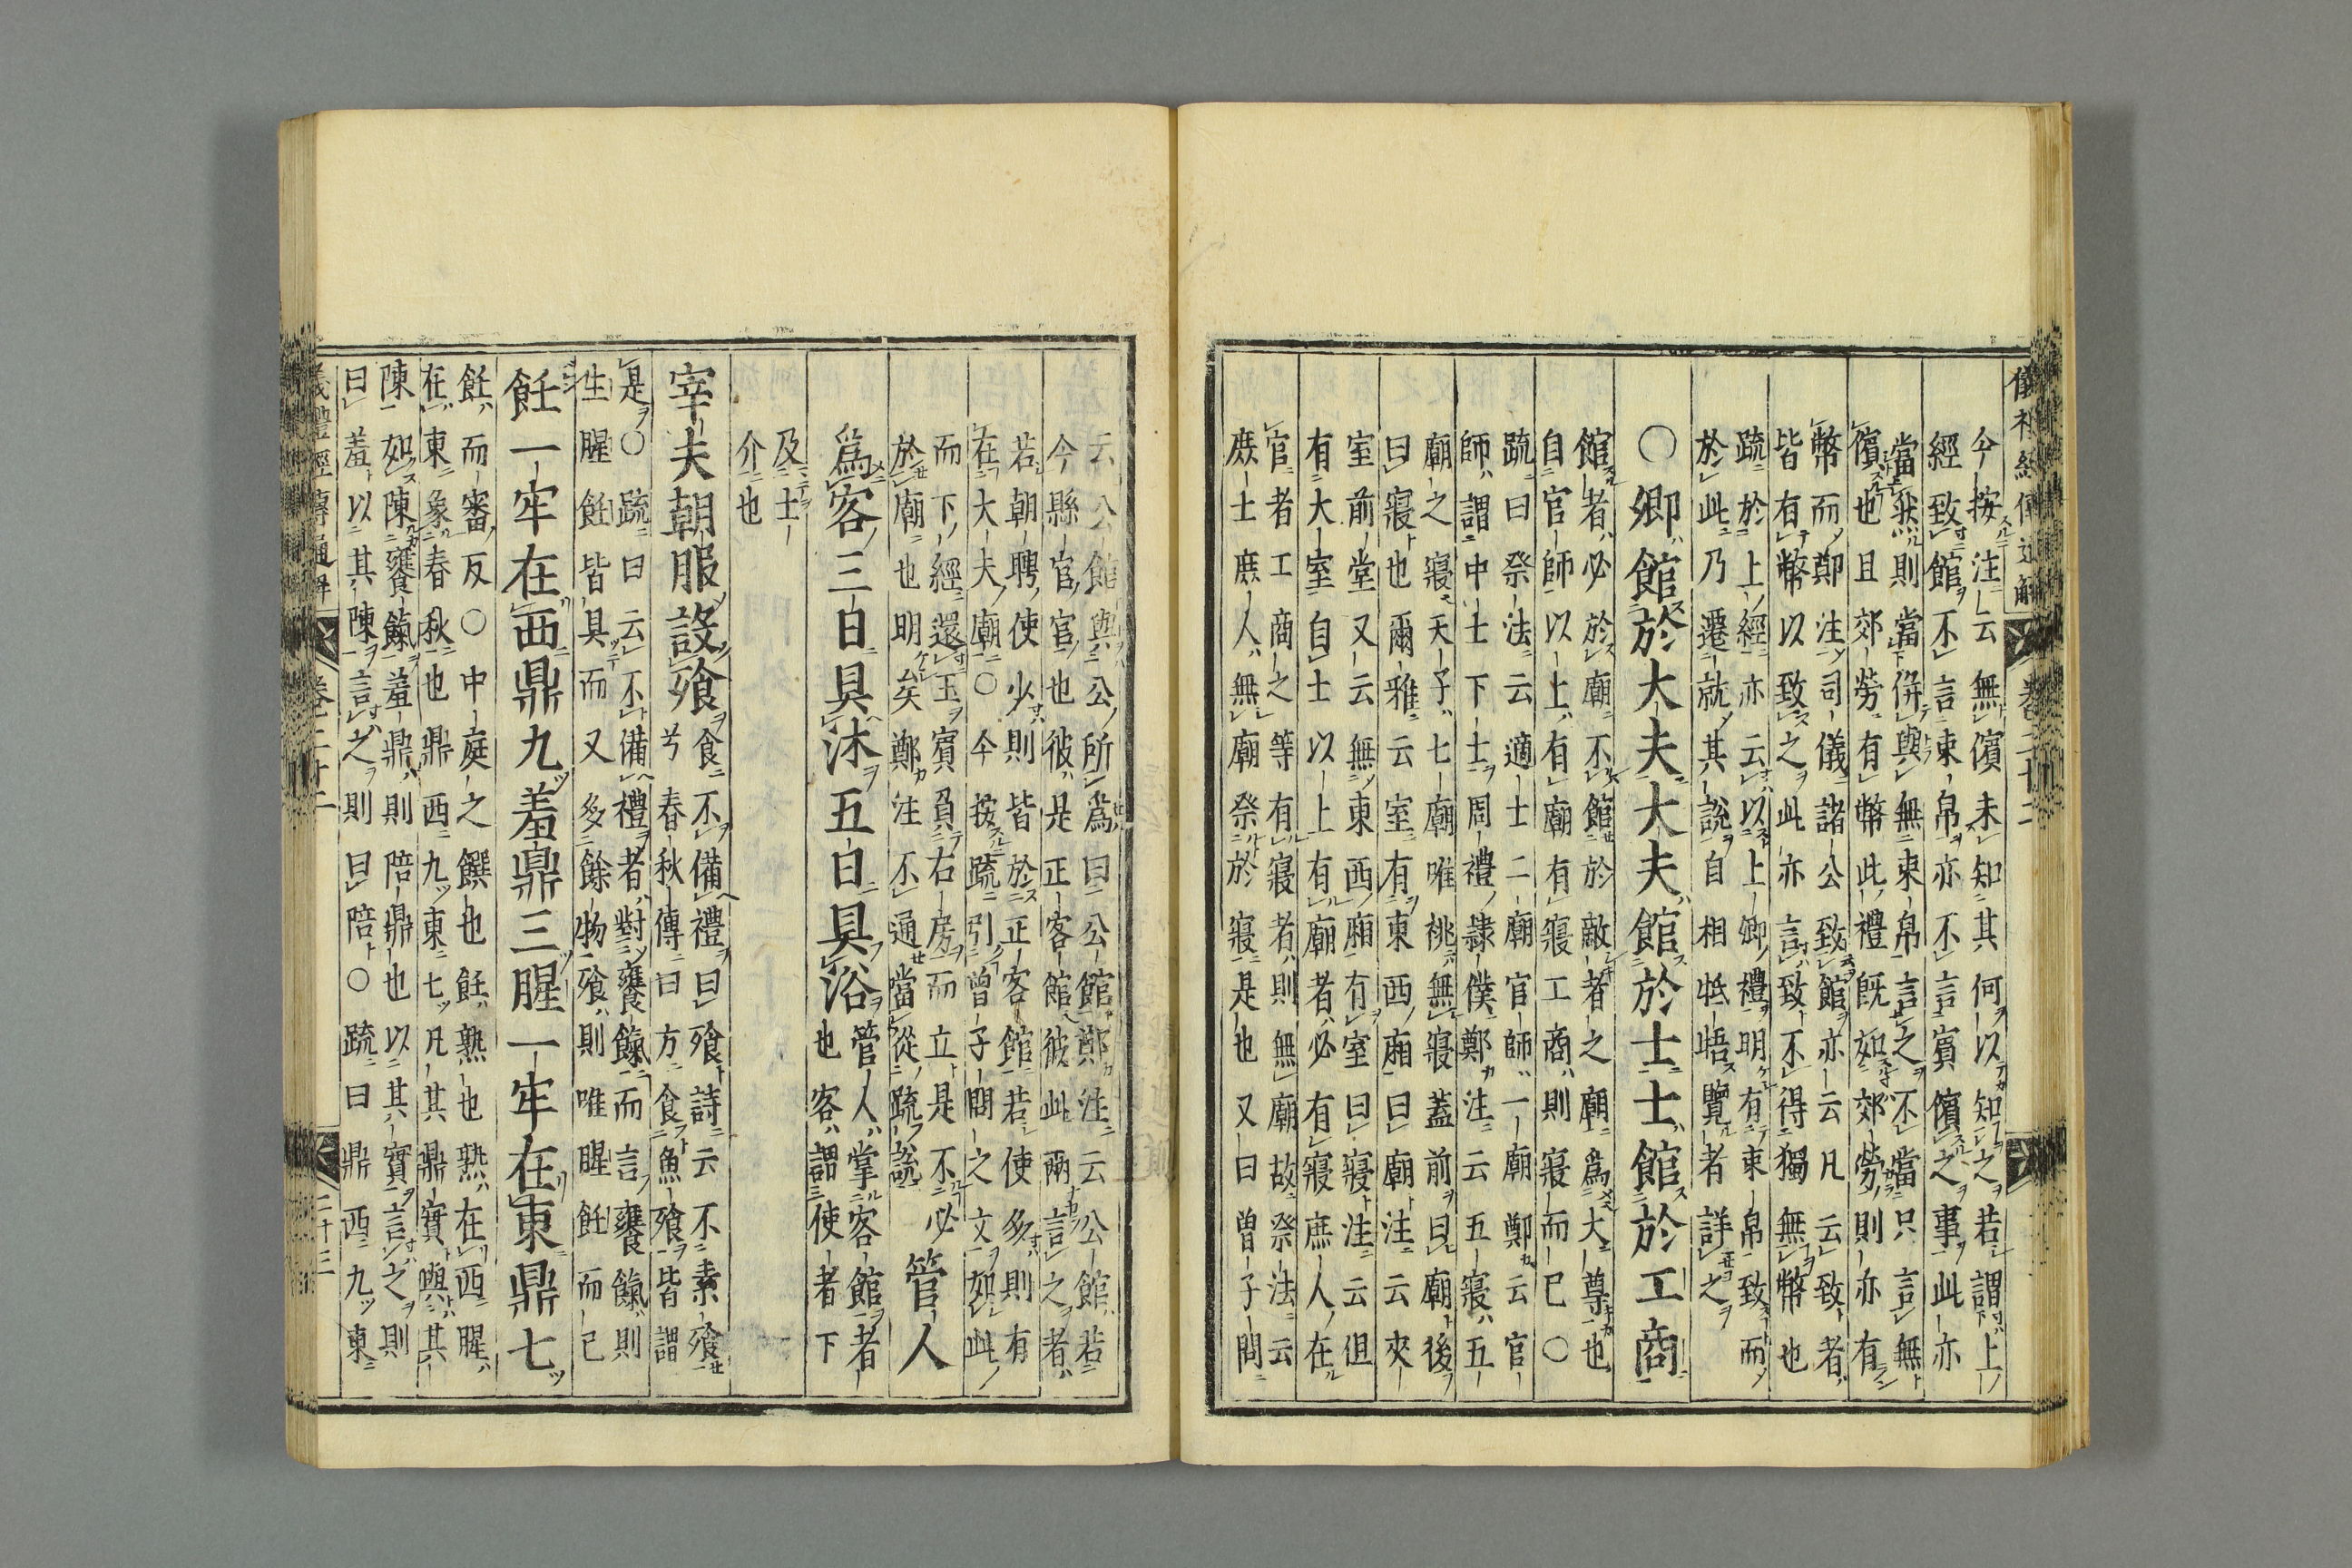 儀禮經傳通解 卷二十二
今按注云無儐未知其何以知之若謂上
經致館不言束帛亦不言賓儐之事此亦
當然則當併與無束帛言之不當只言無
儐也且郊勞有幣此禮既如郊勞則亦有
幣而鄭注司儀諸公致館亦云凡云致者
皆有幣以致之此亦言致不得獨無幣也
疏於上經亦云以上卿禮明有束帛致而
於此乃遷就其說自相牴牾覽者詳之
○卿館於大夫大夫館於士士館於工商
館者必於廟不館於敵者之廟爲大尊也
自官師以上有廟有寢工商則寢而已○
疏曰祭法云適士二廟官師一廟鄭云官
師謂中士下士周禮隸僕鄭注云五寢五
廟之寢天子七廟唯祧無寢蓋前曰廟後
曰寢也爾雅云室有東西廂曰廟注云夾
室前堂又云無東西廂有室曰寢注云但
有大室自士以上有廟者必有寢庶人在
官者工商之等有寢者則無廟故祭法云
庶士庶人無廟祭於寢是也又曰曾子問
云公館與公所爲曰公館鄭注云公館若
今縣官官也彼是正客館彼此兩言之者
若朝聘使少則皆於正客館若使多則有
在大夫廟○今按疏引曾子問之文如此
而下經還玉賓負右房而立是不必
於廟也明矣鄭注不通當從疏說
管人
爲客三日具沐五日具浴
管人掌客館者
也客謂使者下
及士
介也
宰夫朝服設飧
食不備禮曰飧詩云不素飧
兮春秋傳曰方食魚飧皆謂
是○疏曰云不備禮者對饔餼而言饔餼則
生腥飪皆具而又多餘物飧則唯腥飪而已
飪一牢在西鼎九羞鼎三腥一牢在東鼎七
飪而審反○中庭之饌也飪熟也熟在西腥
在東象春秋也鼎西九東七凡其鼎實與其
陳如陳饔餼羞鼎則陪鼎也以其實言之則
曰羞以其陳言之則曰陪○疏曰鼎西九東
儀禮經傳通解 卷二十二 二十三